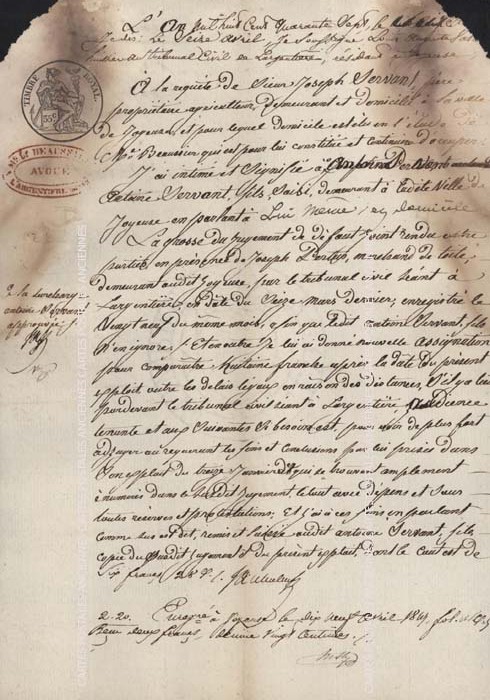 L'An mil huit Cent Quarante Sept,
le Seize avril, Je Soussigné
huissier au tribunal Civil de Largentière, résidant à
TIMBRE ROYAL
35c
A la requête de Sieur Joseph Servant, père
propriétaire agriculteur, demeurant et domicilié à la ville
de Joyeuse, et pour lequel domicile est élu en l'étude de
Me Beaussier qui est pour lui constitué et continuera d'occuper
AVOUÉ
L'ARGENTIÈRE
J'ai intimé et Signifié à
Antoine Servant fils, Saisi, demeurant à la dite Ville de
Joyeuse en parlant à Lui même, en domicile
La grosse du Jugement de défaut Joint rendu entre
parties, en présence de Joseph marchand de toile,
demeurant audit Joyeuse, par le tribunal civil séant à
Largentière, en date du Seize Mars dernier, enregistré le
Vingt neuf du même mois, afin que ledit antoine Servant, fils
N'en ignore; Et en outre Je lui ai donné nouvelle assignation
pour comparaître à huitaine franche après la date du présent
exploit outre les délais légaux en raison des distances, S'il y a lieu
pardevant le tribunal civil séant à Largentière, audience
tenante et aux Suivantes Si besoin est, pour voir de plus fort
adjuger au requérant les fins et conclusions par lui prises dans
Son exploit du treize Janvier qui se trouvent amplement
énumérés dans le susdit Jugement, le tout avec dépens et Sous
toutes réserves et protestations; Et j'ai à ces fins en parlant
comme sus est dit, remis et laissé audit antoine Servant, fils
copie du Susdit Jugement et du présent exploit, dont le coût est de
Six francs
antoine Servant
approuvé
2-20. Enregé à Joyeuse le dix neuf avril 1847, fol.
Reçu deux francs décime vingt centimes.